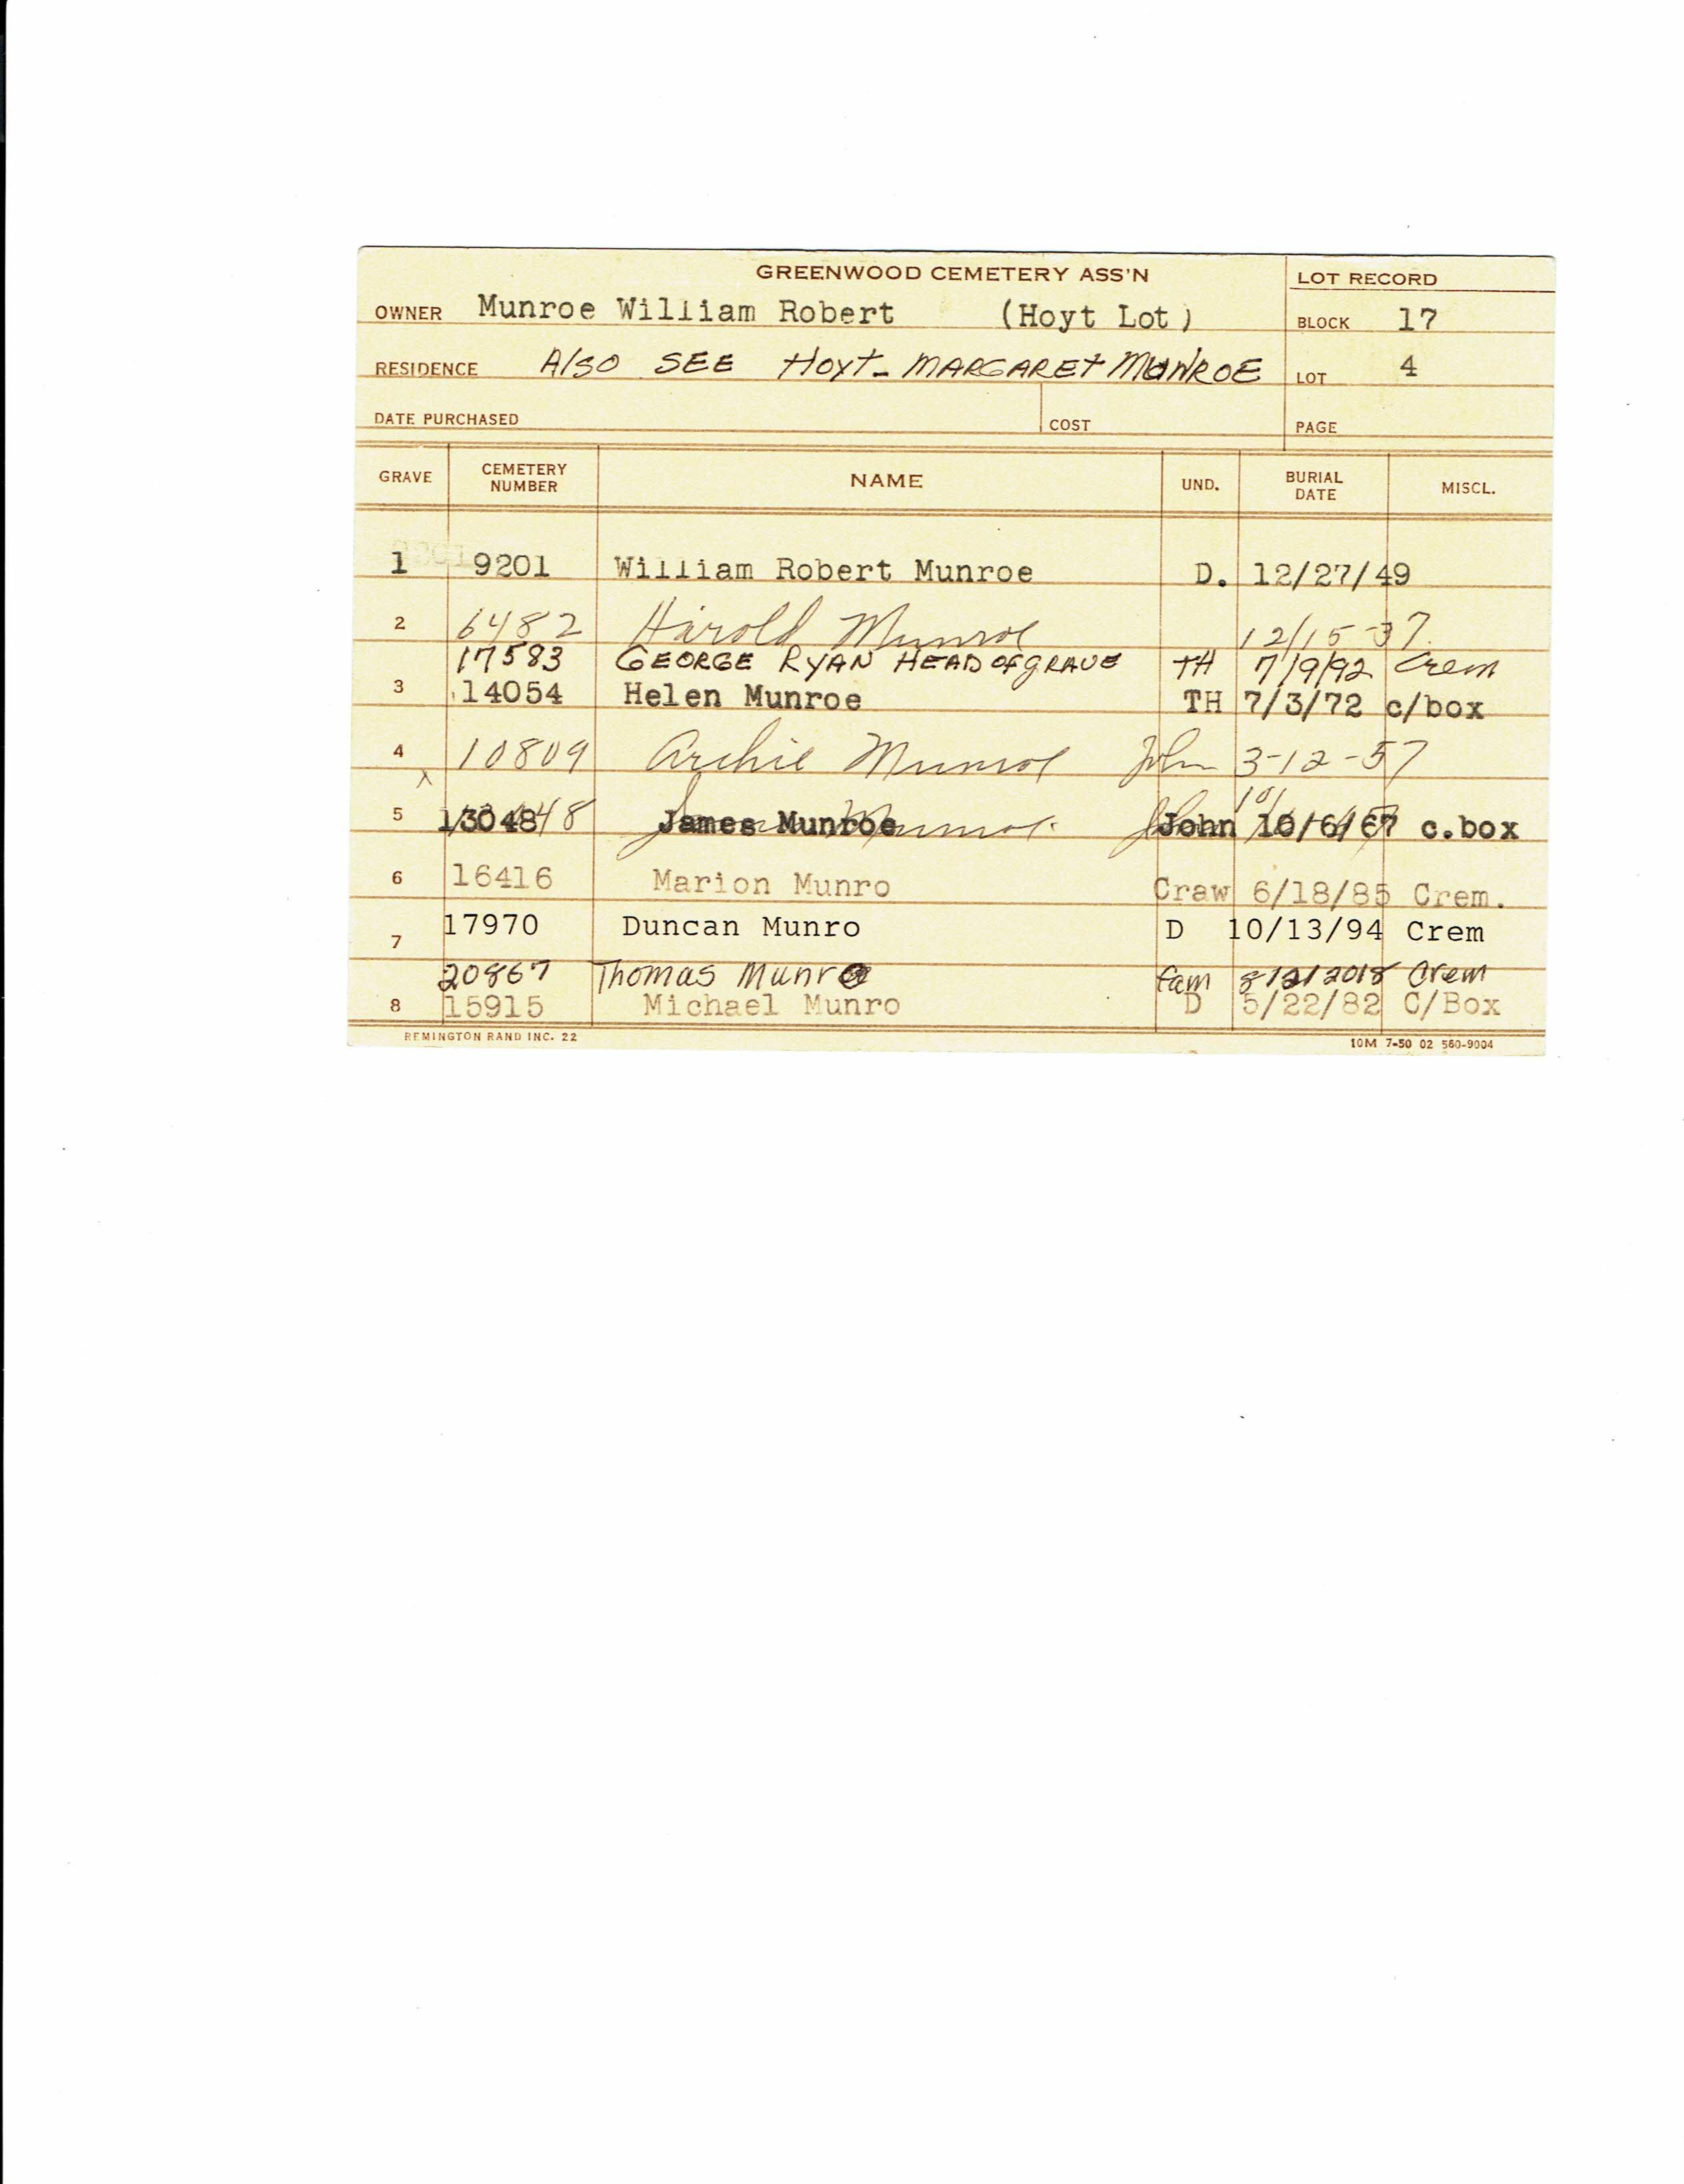 GREENWOOD CEMETERY ASS'N LOT RECORD
OWNER Munroe William Robert (Hoyt Lot) BLOCK 17
RESIDENCE Also SEE Hoyt - MARGARET MUNROE LOT 4
DATE PURCHASED COST PAGE
GRAVE CEMETERY NUMBER NAME UND. BURIAL DATE MISCL.
1 9201 William Robert Munroe D. 12/27/49
2 6482 Harold Munroe 12/15-37
17583 GEORGE RYAN HEAD OF GRAVE TH 7/9/92 Crem
3 14054 Helen Munroe TH 7/3/72 c/box
4 10809 Archie Munroe John 3-12-57
5 13048 James Munroe John 10/6/67 c.box
6 16416 Marion Munro Craw 6/18/85 Crem.
7 17970 Duncan Munro D 10/13/94 Crem
20867 Thomas Munro fam 8/2/2018 Crem
8 15915 Michael Munro D 5/22/82 C/Box
REMINGTON RAND INC. 22 10M 7-50 02 560-9004